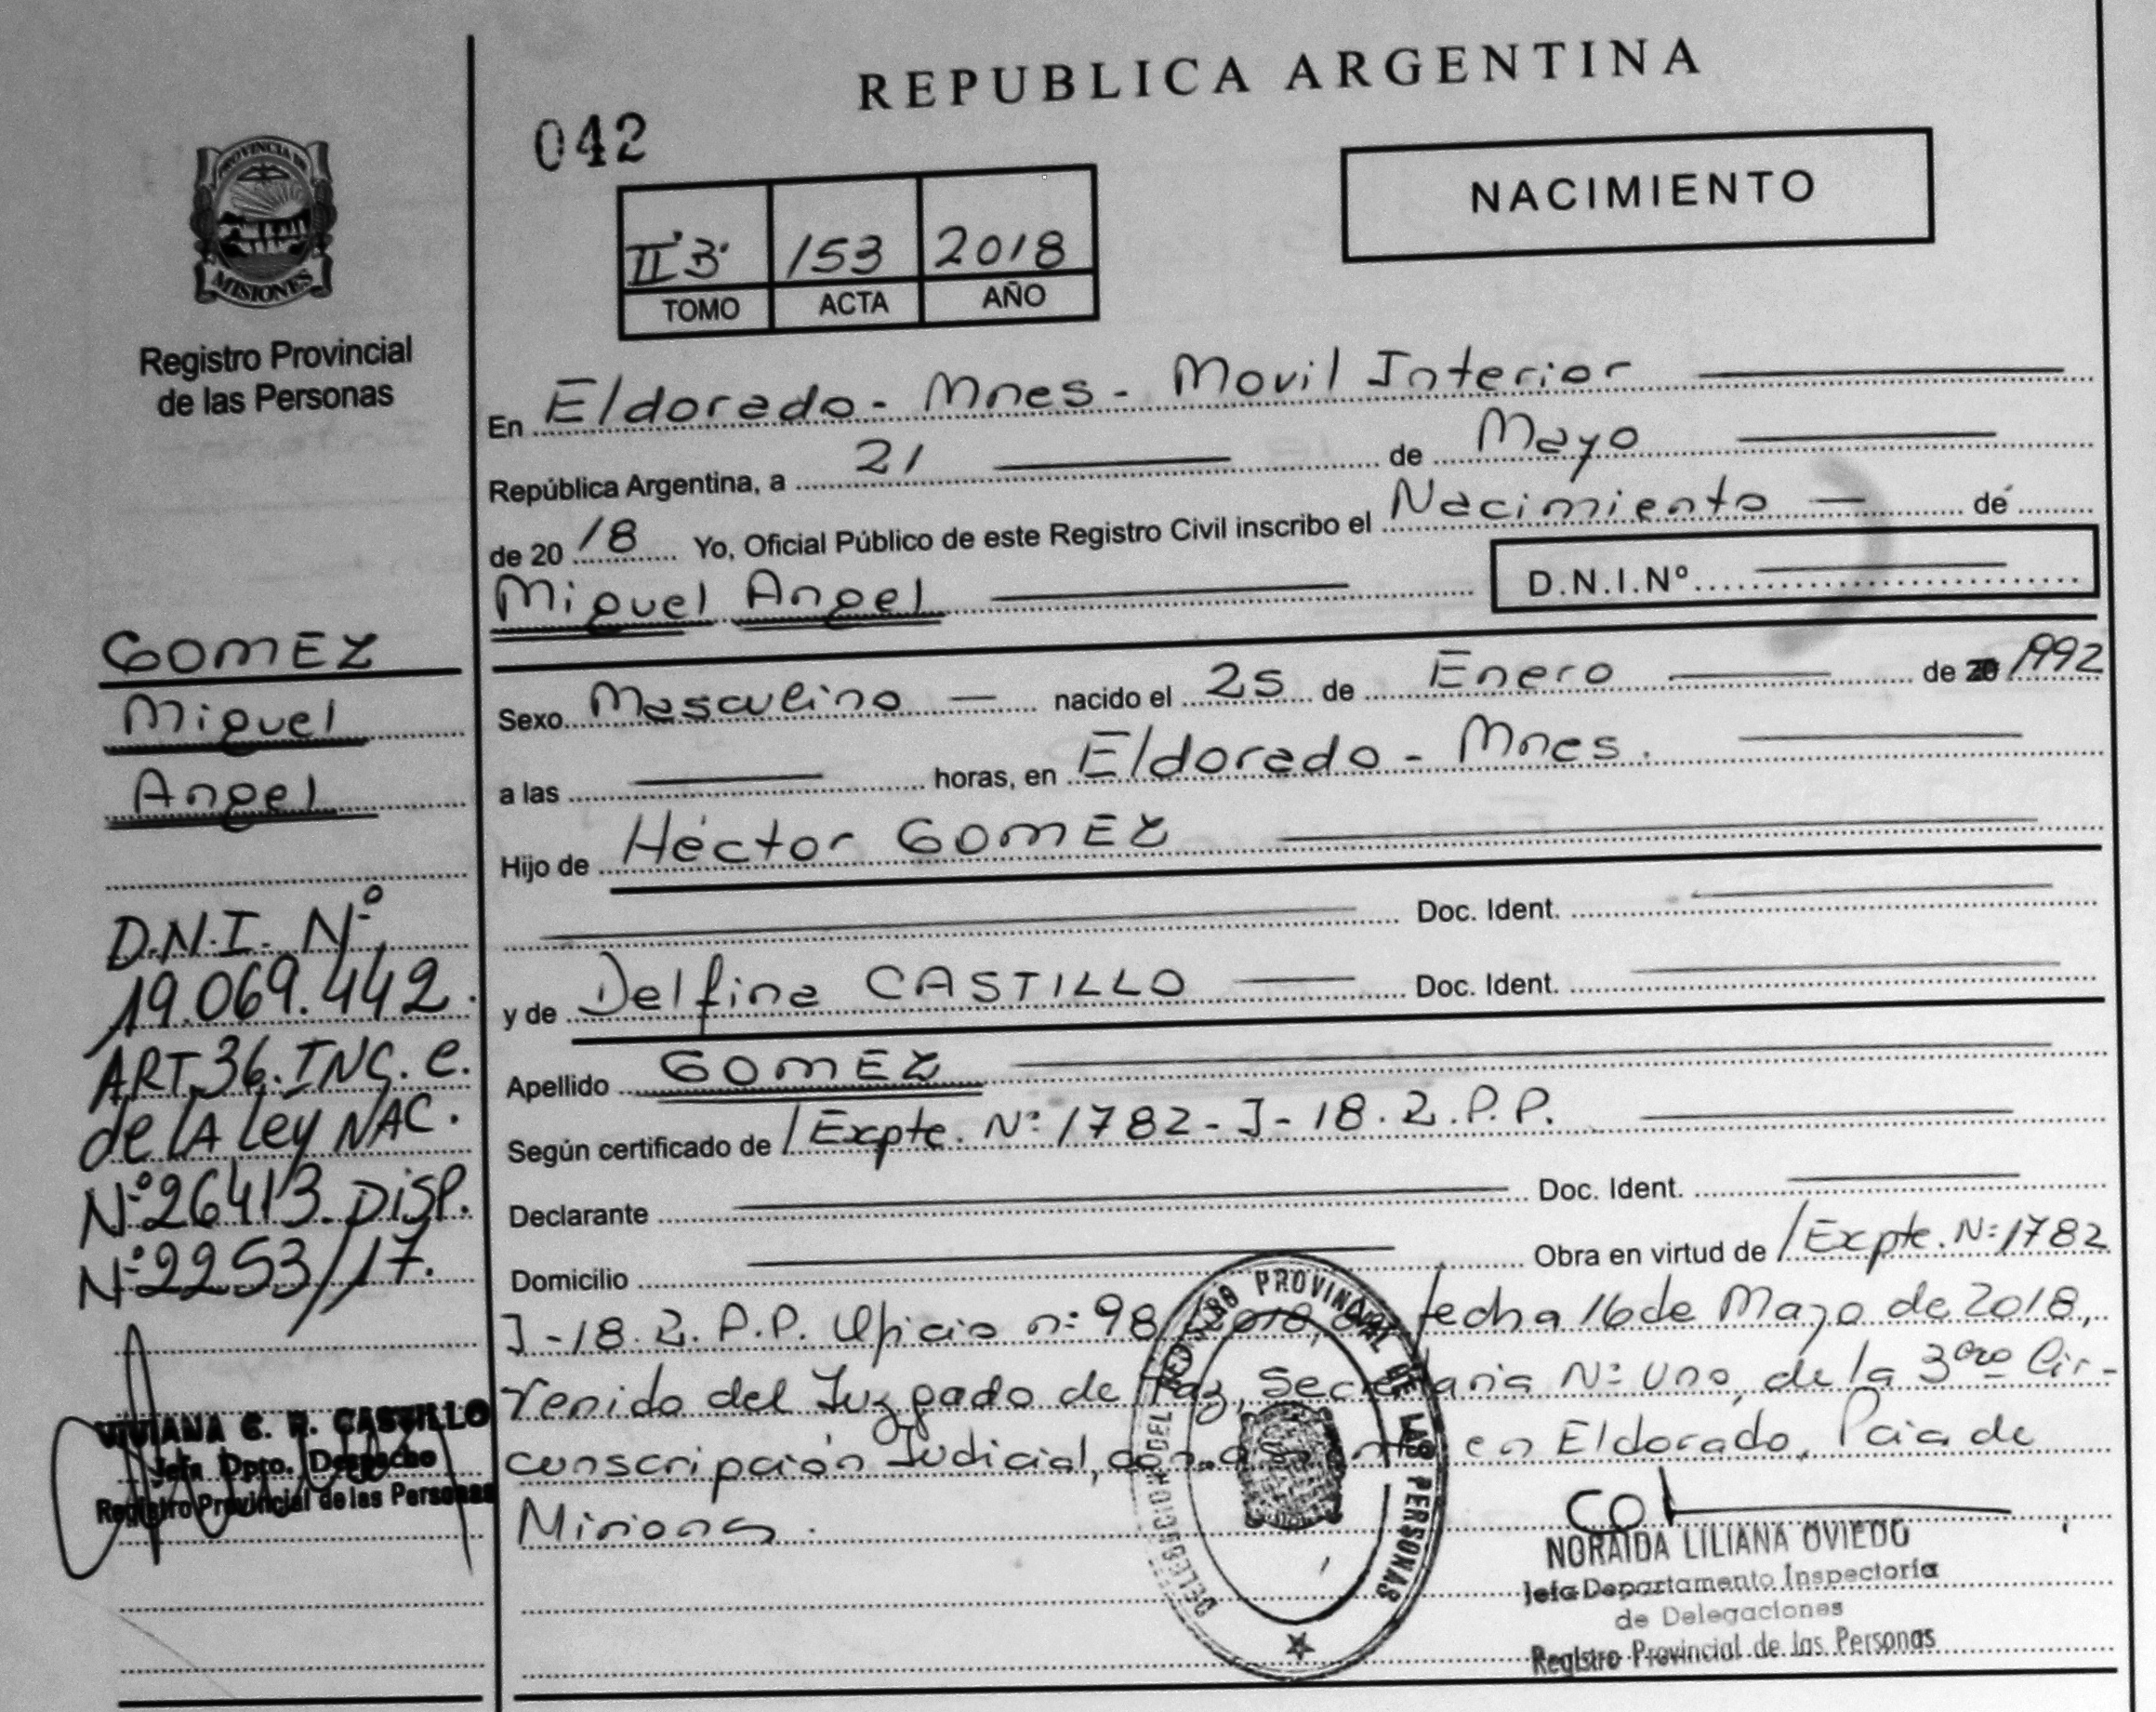 REPUBLICA ARGENTINA
042
NACIMIENTO
PROVINCIA DE
MISIONES
Registro Provincial
de las Personas
II 3 153 2018
TOMO ACTA AÑO
En Eldorado - Mnes - Movil Interior
República Argentina, a 21 de Mayo
de 20 18 Yo, Oficial Público de este Registro Civil inscribo el Nacimiento de
Miguel Angel
D.N.I.Nº
GOMEZ
Miguel
Angel
D.N.I. Nº
19.069.442.
ART. 36. INC. e.
de LA Ley NAC.
Nº 26413. DISP.
Nº 2253/17.
VIVIANA C. R. CASTILLO
Jefa Dpto. Despacho
Registro Provincial de las Personas
Sexo Masculino nacido el 25 de Enero de 20 1992
a las horas, en Eldorado - Mnes.
Hijo de Héctor GOMEZ
Doc. Ident.
y de Delfina CASTILLO Doc. Ident.
Apellido GOMEZ
Según certificado de /Expte. Nº 1782-J-18.R.P.P.
Declarante Doc. Ident.
Domicilio Obra en virtud de /Expte. Nº 1782
J-18.R.P.P. Oficio nº 98 2018, fecha 16 de Mayo de 2018,
venido del Juzgado de Paz, Secretaria Nº Uno, de la 3era Cir-
cunscripción Judicial, con asiento en Eldorado, Pcia de
Misiones.
DELEGACION DEL REGISTRO PROVINCIAL DE LAS PERSONAS
NORAIDA LILIANA OVIEDO
Jefa Departamento Inspectoría
de Delegaciones
Registro Provincial de las Personas